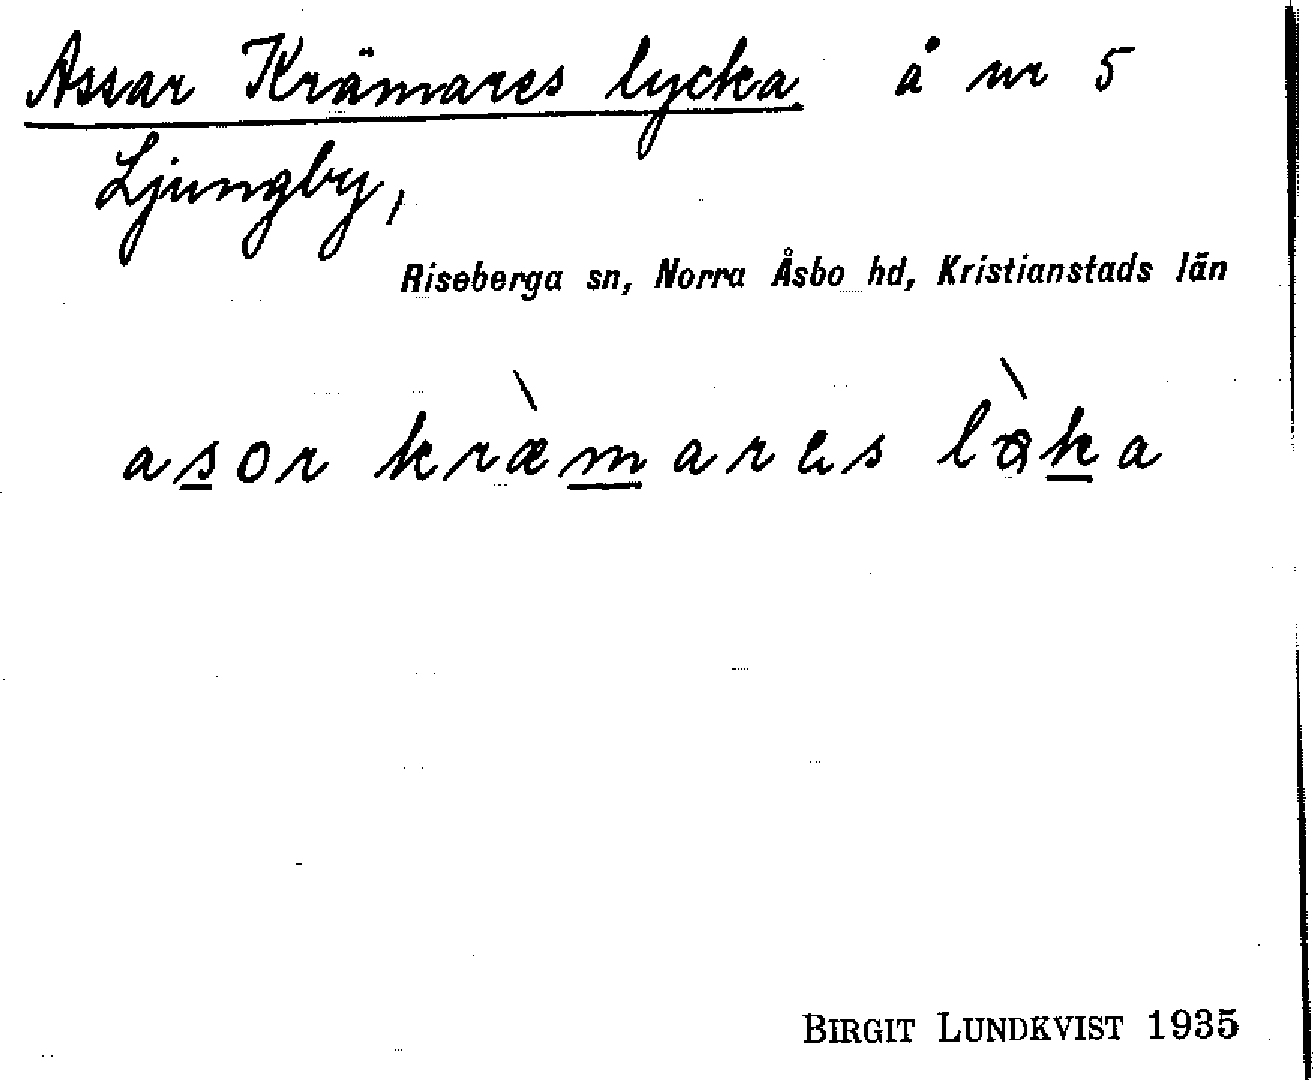 Assar Krämares lycka å nr 5
Ljungby,
Riseberga sn, Norra Åsbo hd, Kristianstads län
asor kræ̀mares
BIRGIT LUNDKVIST 1935